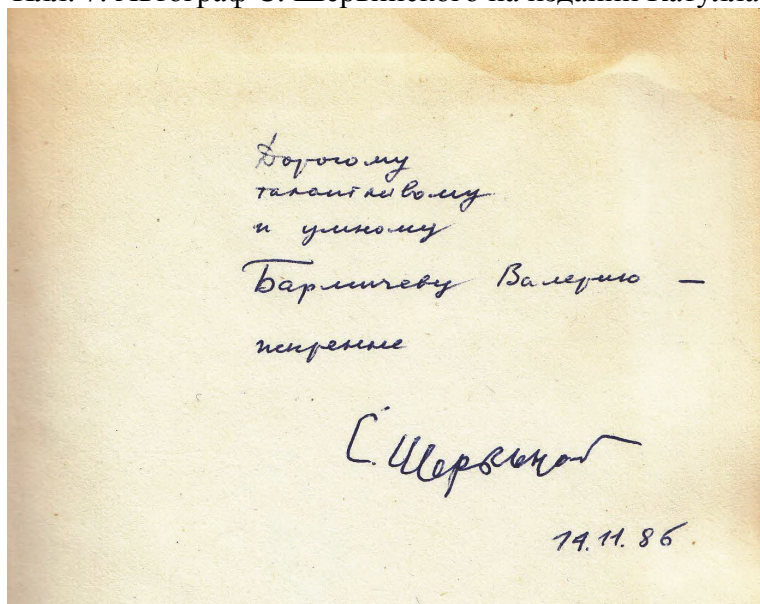 Илл. 7. Автограф С. Шервинского на издании Катулла
Дорогому
талантливому
и умному
Бармичеву Валерию —
искренне
С. Шервинск
14.11.86